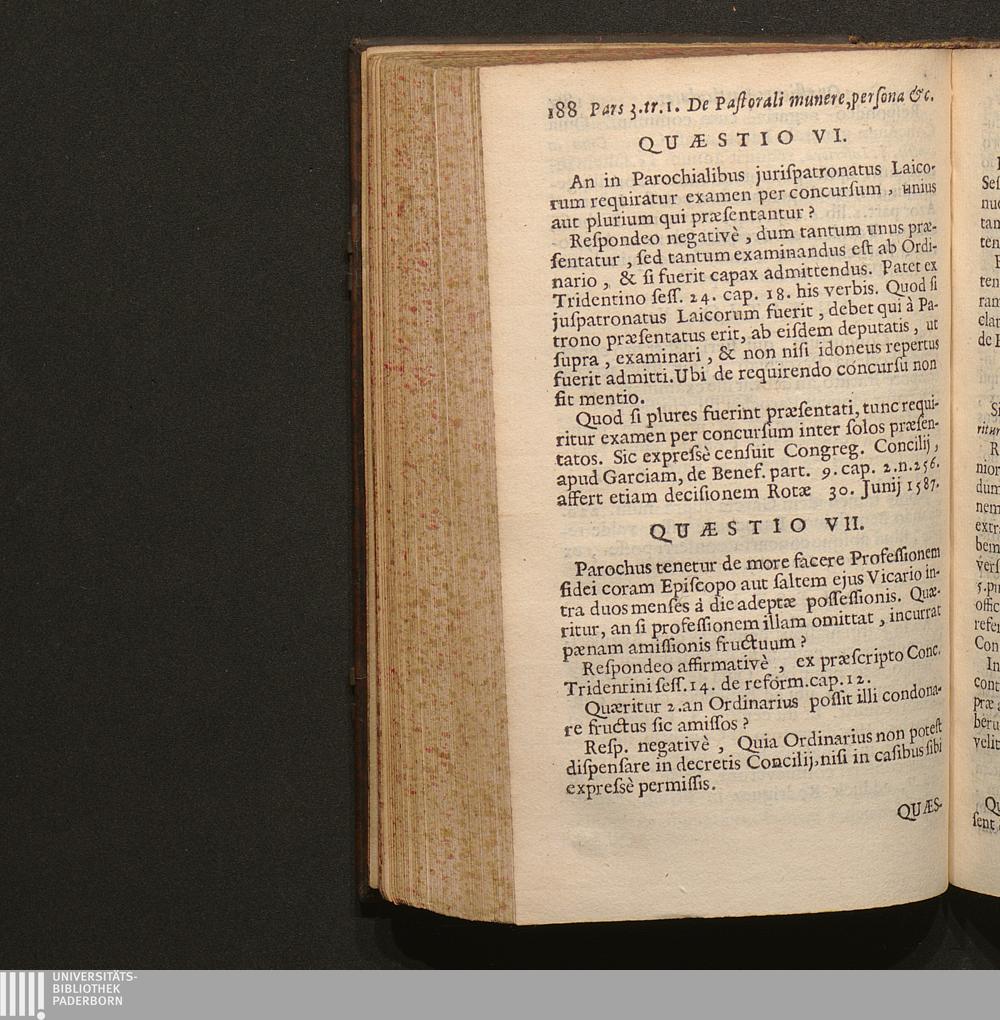 188 Pars 3.tr.1. De Paſtorali munere, perſona &c.
QUÆSTIO VI.
An in Parochialibus juriſpatronatus Laico-
rum requiratur examen per concurſum, unius
aut plurium qui præſentantur?
Reſpondeo negativè, dum tantum unus præ-
ſentatur, ſed tantum examinandus eſt ab Ordi-
nario, & ſi fuerit capax admittendus. Patet ex
Tridentino ſeſſ. 24. cap. 18. his verbis. Quod ſi
juſpatronatus Laicorum fuerit, debet qui à Pa-
trono præſentatus erit, ab eiſdem deputatis, ut
ſupra, examinari, & non niſi idoneus repertus
fuerit admitti. Ubi de requirendo concurſu non
fit mentio.
Quod ſi plures fuerint præſentati, tunc requi-
ritur examen per concurſum inter ſolos præſen-
tatos. Sic expreſsè cenſuit Congreg. Concilij,
apud Garciam, de Benef. part. 9. cap. 2.n.256.
affert etiam deciſionem Rotæ 30. Junij 1587.
QUÆSTIO VII.
Parochus tenetur de more facere Profeſſionem
fidei coram Epiſcopo aut ſaltem ejus Vicario in-
tra duos menſes à die adeptæ poſſeſſionis. Quæ-
ritur, an ſi profeſſionem illam omittat, incurrat
pænam amiſſionis fructuum?
Reſpondeo affirmativè, ex præſcripto Conc.
Tridentini ſeſſ.14. de reform.cap.12.
Quæritur 2.an Ordinarius poſſit illi condona-
re fructus ſic amiſſos?
Reſp. negativè, Quia Ordinarius non poteſt
diſpenſare in decretis Concilij, niſi in caſibus ſibi
expreſsè permiſſis.
QUÆS-
UNIVERSITÄTS-
BIBLIOTHEK
PADERBORN